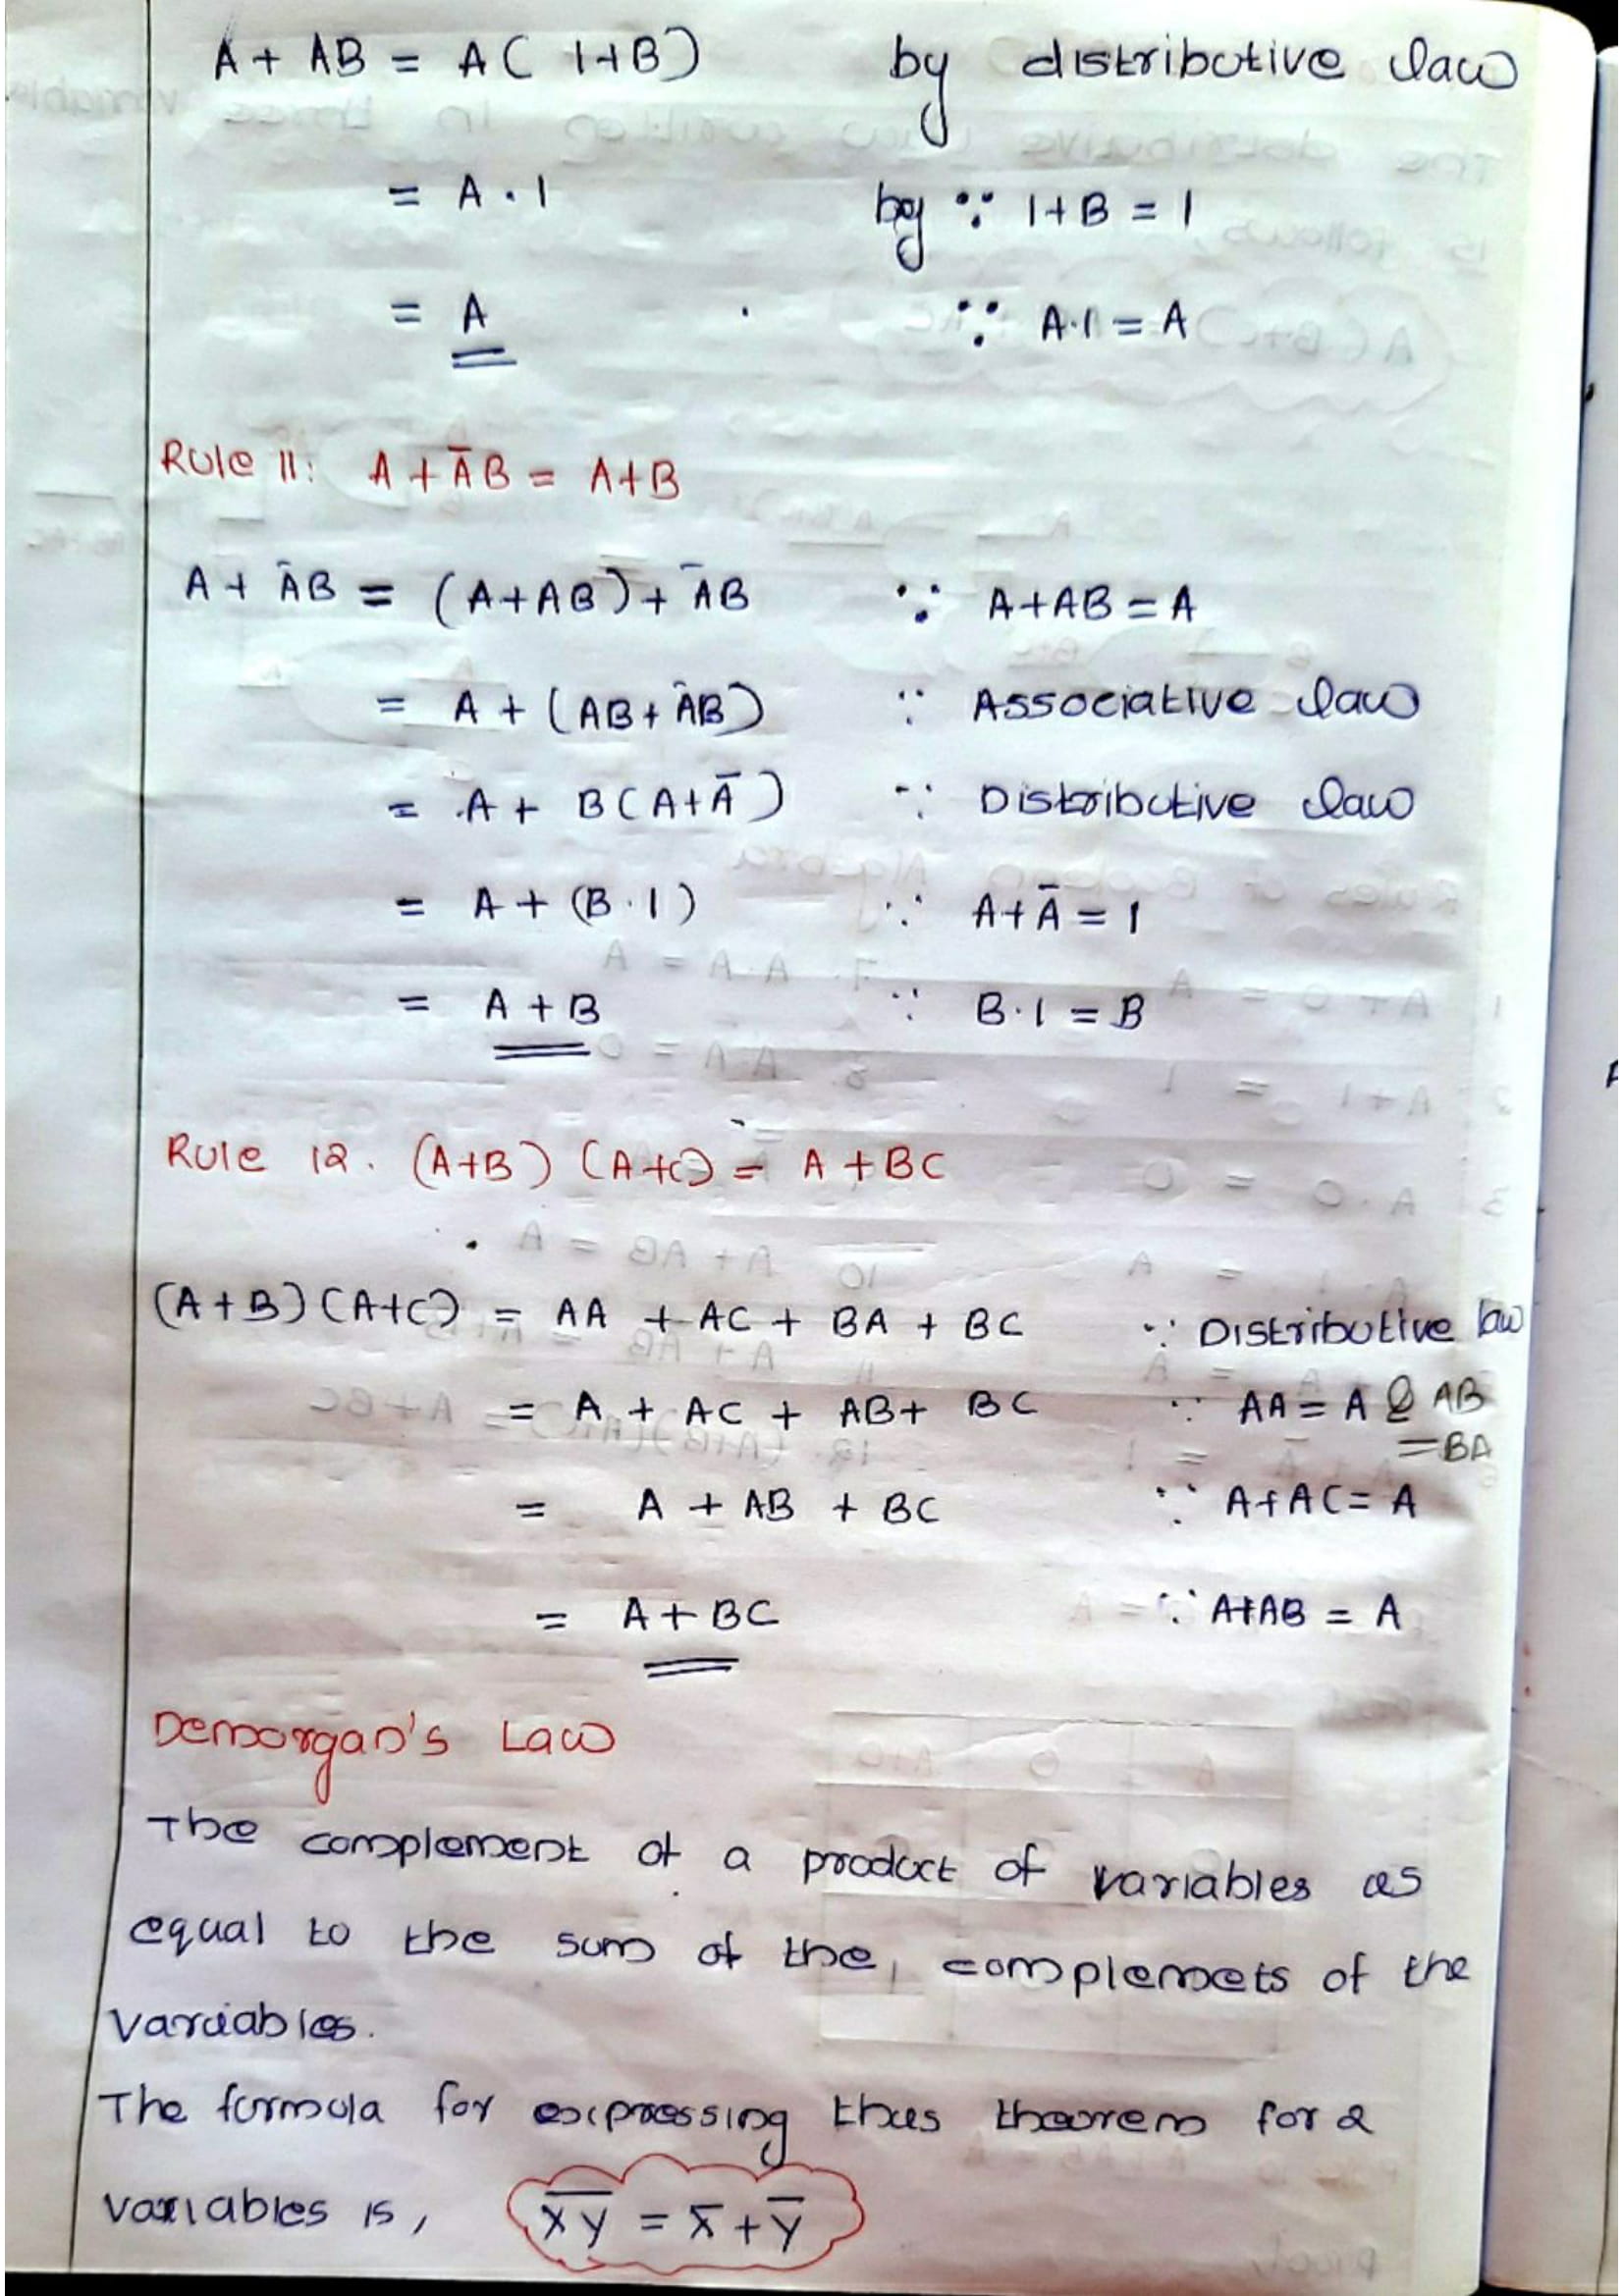 A + AB = A( 1+B) by distributive law
= A · 1 by ∵ 1+B = 1
= A ∵ A·1 = A
Rule 11: A + A̅B = A+B
A + A̅B = (A+AB) + A̅B ∵ A+AB = A
= A + (AB + A̅B) ∵ Associative law
= A + B(A+A̅) ∵ Distributive law
= A + (B·1) ∵ A+A̅ = 1
= A + B ∵ B·1 = B
Rule 12. (A+B) (A+C) = A + BC
(A+B)(A+C) = AA + AC + BA + BC ∵ Distributive law
= A + AC + AB + BC ∵ AA = A & AB
= BA
= A + AB + BC ∵ A+AC = A
= A + BC ∵ A+AB = A
Demorgan's Law
The complement of a product of variables as
equal to the sum of the complemets of the
variables.
The formula for expressing this theorem for 2
variables is, X̅Y̅ = X̅ + Y̅